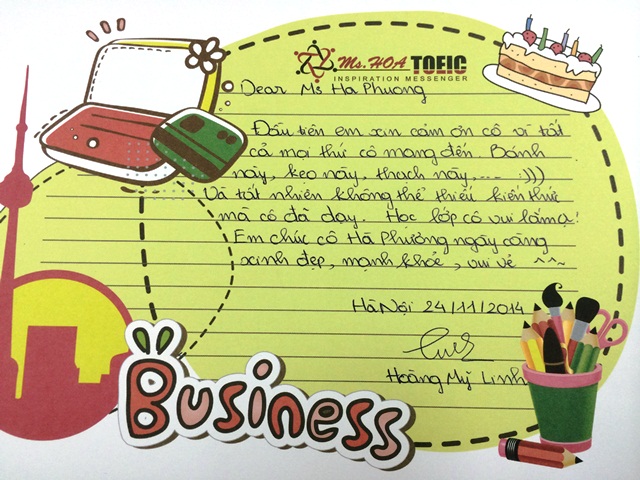 Ms.HOA TOEIC
INSPIRATION MESSENGER
Dear Ms Hà Phương
Đầu tiên em xin cảm ơn cô vì tất
cả mọi thứ cô mang đến. Bánh
này, kẹo này, thạch này,... :)))
Và tất nhiên không thể thiếu kiến thức
mà cô đã dạy. Học lớp cô vui lắm ạ!
Em chúc cô Hà Phương ngày càng
xinh đẹp, mạnh khỏe, vui vẻ ^^~
Hà Nội 24/11/2014
Hoàng Mỹ Linh
Business